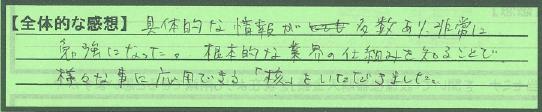 【全体的な感想】具体的な情報が多数あり、非常に
勉強になった。根本的な業界の仕組みを知ることで、
様々な事に応用できる「核」をいただきました。